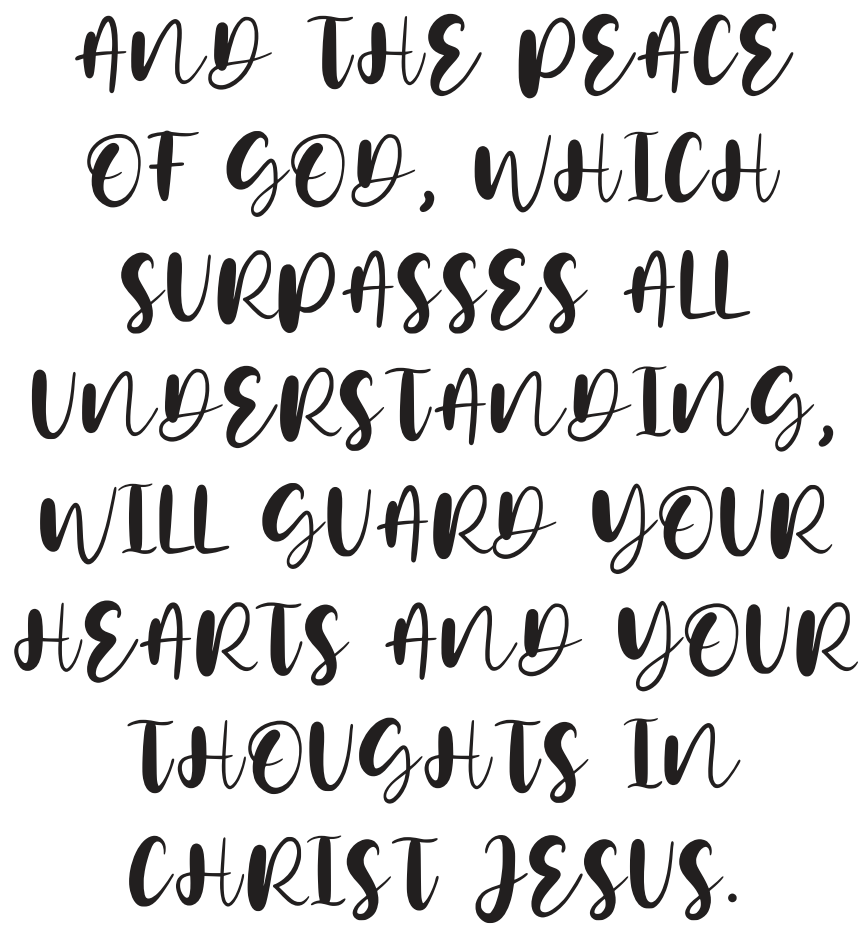 AND THE PEACE
OF GOD, WHICH
SURPASSES ALL
UNDERSTANDING,
WILL GUARD YOUR
HEARTS AND YOUR
THOUGHTS IN
CHRIST JESUS.